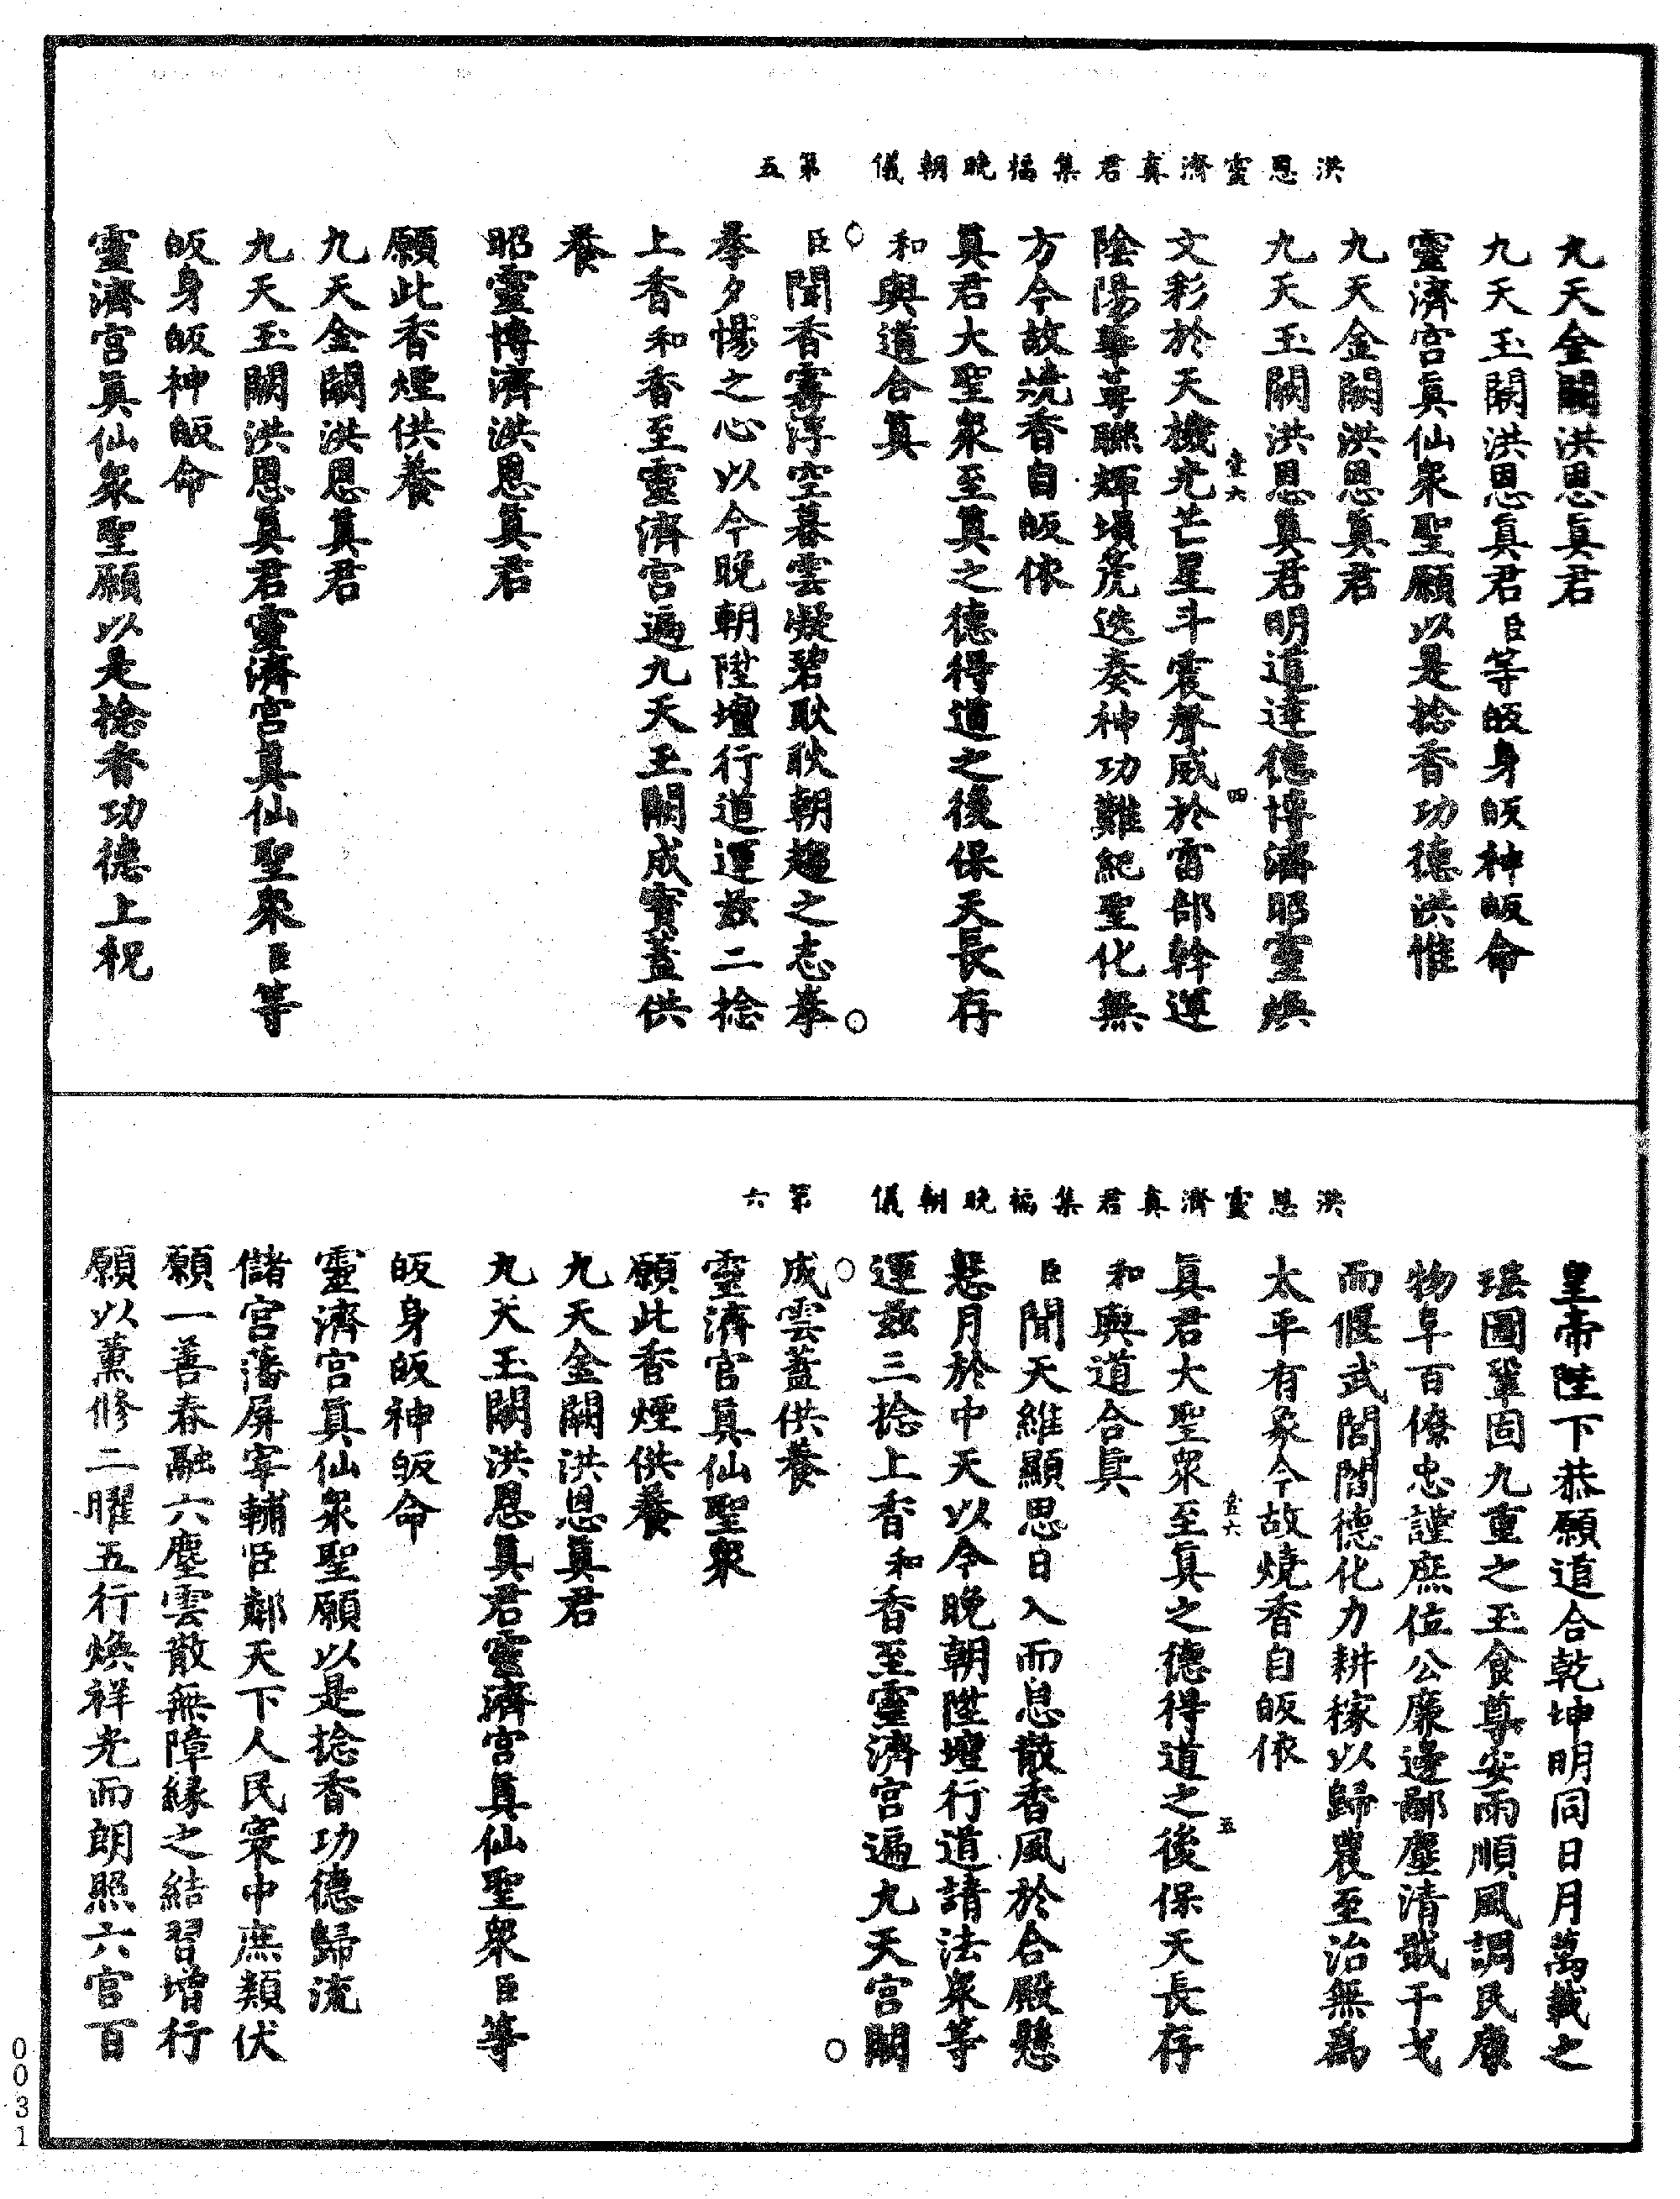 洪恩靈濟真君集福晚朝儀　第五
九天金闕洪恩真君
九天玉闕洪恩真君臣等皈身皈神皈命
靈濟宮真仙衆聖願以是捻香功德洪惟
九天金闕洪恩真君
九天玉闕洪恩真君明道達德博濟昭靈煥
壹六
四
文彩於天機光芒星斗震聲威於雷部斡運
陰陽華萼聯輝塤箎迭奏神功難紀聖化無
方今故燒香自皈依
真君大聖衆至真之德得道之後保天長存
和與道合真
臣聞香霧浮空暮雲凝碧耿耿朝趨之志拳
拳夕惕之心以今晚朝陞壇行道運兹二捻
上香和香至靈濟宮遍九天玉闕成寶蓋供
養
昭靈博濟洪恩真君
願此香煙供養
九天金闕洪恩真君
九天玉闕洪恩真君靈濟宮真仙聖衆臣等
皈身皈神皈命
靈濟宮真仙衆聖願以是捻香功德上祝
洪恩靈濟真君集福晚朝儀　第六
皇帝陛下恭願道合乾坤明同日月萬載之
瑶圖鞏固九重之玉食尊安雨順風調民康
物阜百僚忠謹庶位公廉邊鄙塵清戢干戈
而偃武閭閻德化力耕稼以歸農至治無爲
太平有象今故燒香自皈依
壹六
五
真君大聖衆至真之德得道之後保天長存
和與道合真
臣聞天維顯思日入而息散香風於合殿懸
慧月於中天以今晚朝陞壇行道請法衆等
運兹三捻上香和香至靈濟宮遍九天宮闕
成雲蓋供養
靈濟宮真仙聖衆
願此香煙供養
九天金闕洪恩真君
九天玉闕洪恩真君靈濟宮真仙聖衆臣等
皈身皈神皈命
靈濟宮真仙衆聖願以是捻香功德歸流
儲宮藩屏宰輔臣鄰天下人民寰中庶類伏
願一善春融六塵雲散無障緣之結習增行
願以薰修二曜五行煥祥光而朗照六宮百
0031